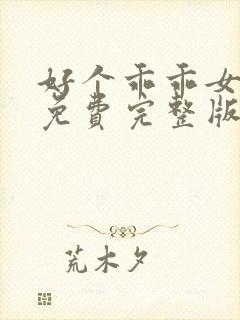 好个乖乖女
免费完整版
荒木夕